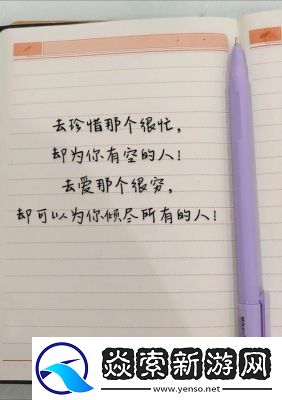 去珍惜那个很忙，
却为你有空的人！
去爱那个很穷，
却可以为你倾尽所有的人！
焱索新游网
www.yenso.net